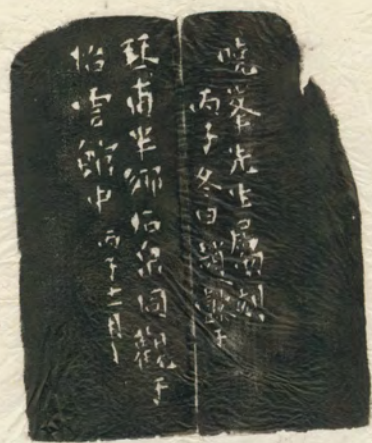 曉峯先生屬刻
丙子冬日
甫半石泉同觀于
怡雲館中 丙子十二月